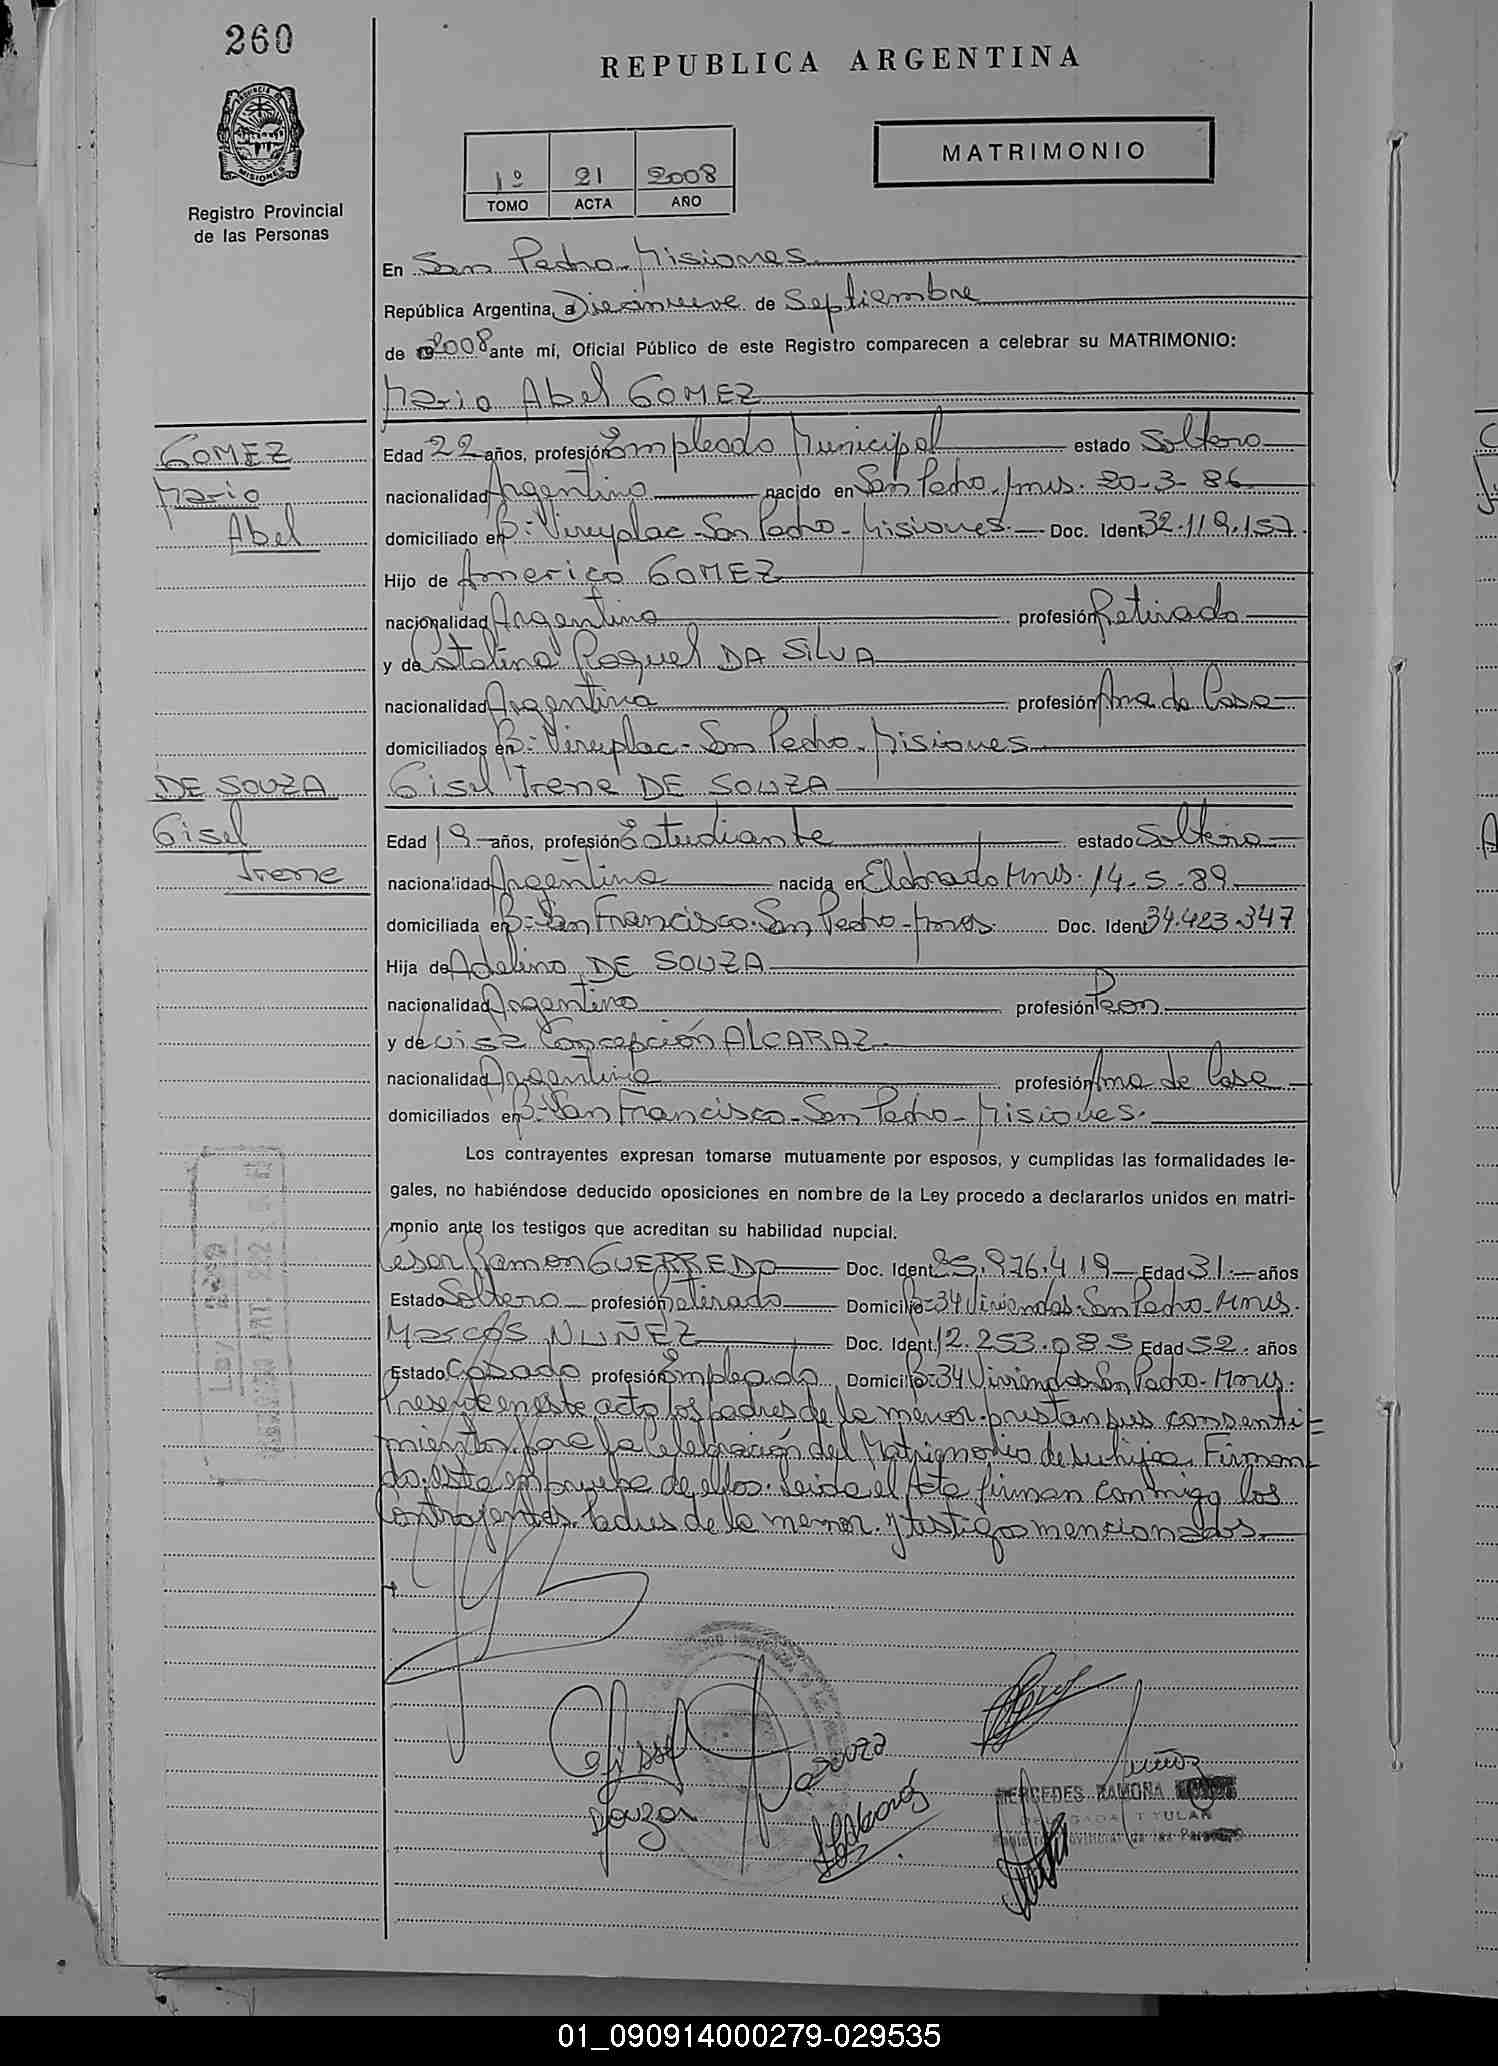 260
REPUBLICA ARGENTINA
PROVINCIA DE
MISIONES
Registro Provincial
de las Personas
1º 21 2008
TOMO ACTA AÑO
MATRIMONIO
En San Pedro-Misiones
República Argentina, a Diecinueve de Septiembre
de 2008 ante mí, Oficial Público de este Registro comparecen a celebrar su MATRIMONIO:
Mario Abel GOMEZ
GOMEZ
Mario
Abel
Edad 22 años, profesión Empleado Municipal estado Soltero
nacionalidad Argentino nacido en San Pedro-Mnes. 20-3-86
domiciliado en Bº Viruplac-San Pedro-Misiones. Doc. Ident. 32.119.157.
Hijo de Americo GOMEZ
nacionalidad Argentino profesión Retirado
y de Catalina Raquel DA SILVA
nacionalidad Argentina profesión Ama de Casa
domiciliados en Bº Viruplac-San Pedro-Misiones
DE SOUZA
Gisel
Irene
Gisel Irene DE SOUZA
Edad 19 años, profesión Estudiante estado Soltera
nacionalidad Argentina nacida en Eldorado Mnes. 14-5-89
domiciliada en Bº San Francisco-San Pedro-Mnes Doc. Ident. 34.423.347
Hija de Adelino DE SOUZA
nacionalidad Argentino profesión Peon
y de Luisa Concepción ALCARAZ
nacionalidad Argentina profesión Ama de Casa
domiciliados en Bº San Francisco-San Pedro-Misiones.
Los contrayentes expresan tomarse mutuamente por esposos, y cumplidas las formalidades le-
gales, no habiéndose deducido oposiciones en nombre de la Ley procedo a declararlos unidos en matri-
monio ante los testigos que acreditan su habilidad nupcial.
Cesar Ramon GUERREDO Doc. Ident. 25.976.419 Edad 31 años
Estado Soltero profesión Retirado Domicilio Bº 34 Viviendas-San Pedro-Mnes.
Marcos NUÑEZ Doc. Ident. 12.253.085 Edad 52. años
Estado Casado profesión Empleado Domicilio Bº 34 Viviendas San Pedro-Mnes.
Presente en este acto los padres de la menor prestan sus consenti=
mientos para la Celebración del Matrimonio de su hija. Firman-
do este en prueba de ellos. Leida el Acta firman conmigo los
Contrayentes. Padres de la menor. y testigos mencionados.
Gissel
Souza
Souza
MERCEDES RAMONA
DELEGADA TITULAR
Registro Provincial de las Personas
01_090914000279-029535